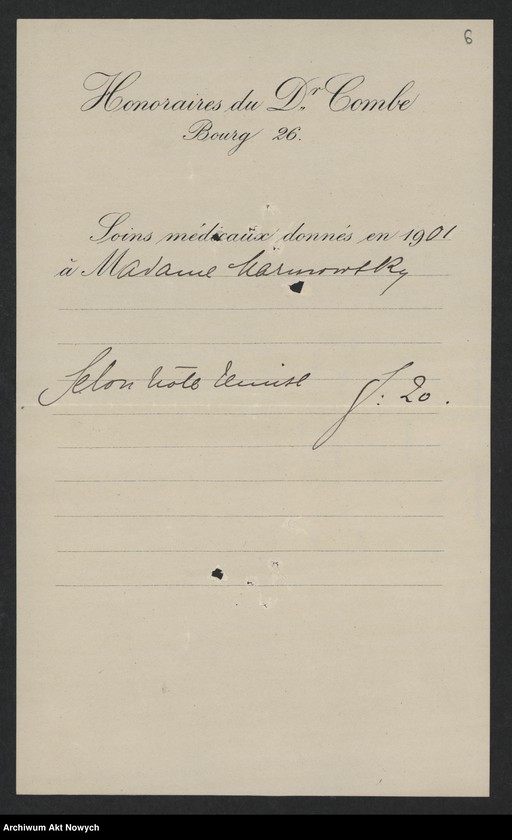 6
Honoraires du Dr. Combe
Bourg 26.
Soins médicaux donnés en 1901
à Madame
Selon note remise f. 20.
Archiwum Akt Nowych